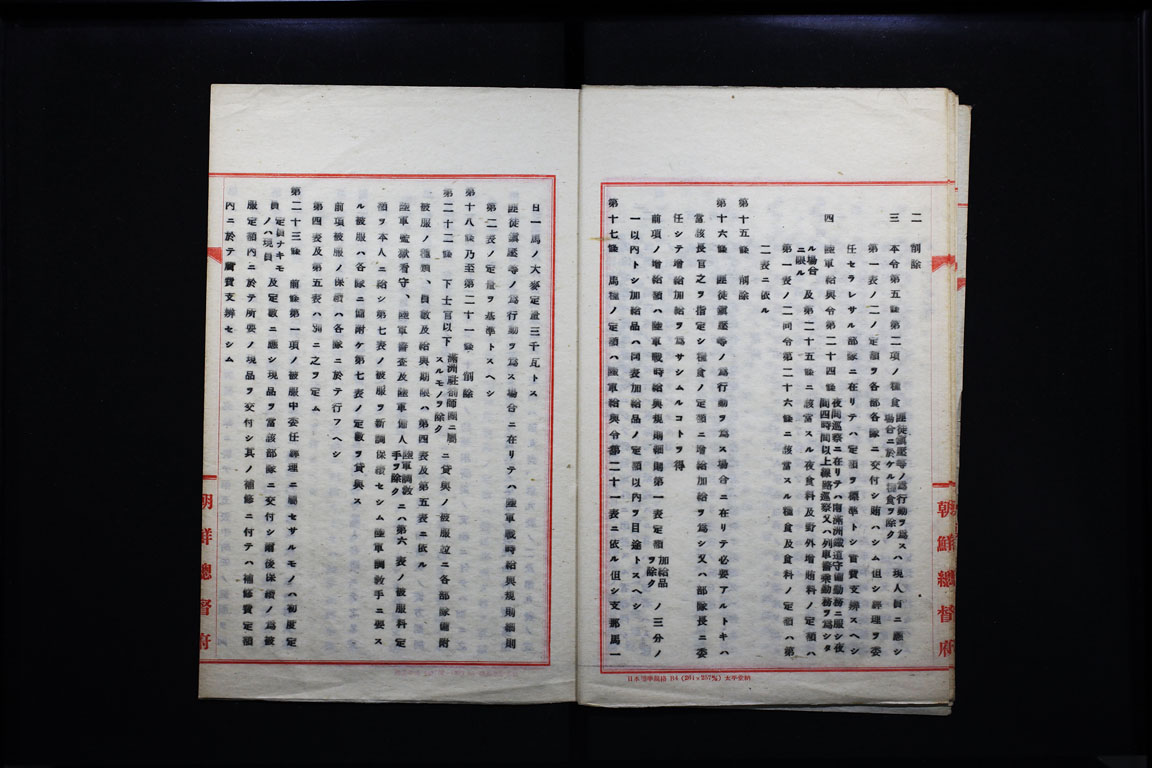 二　削除
三　本令第五條第二項ノ糧食匪徒鎭壓等ノ爲行動ヲ爲ス場合ニ於ケル糧食ヲ除クハ現人員ニ應シ
第一表ノ二ノ定額ヲ各部各隊ニ交付シ賄ハシム但シ經理ヲ委
任セラレサル部隊ニ在リテハ定額ヲ標準トシ實費支辨スヘシ
四　陸軍給與令第二十四條夜間巡察ニ在リテハ南滿洲鐵道守備勤務ニ服シ夜間四時間以上線路巡察又ハ列車警乘勤務ヲ爲シタ
ル場合ニ限ル及第二十五條ニ該當スル夜食料及野外增賄料ノ定額ハ
第一表ノ二同令第二十六條ニ該當スル糧食及食料ノ定額ハ第
二表ニ依ル
第十五條　削除
第十六條　匪徒鎭壓等ノ爲行動ヲ爲ス場合ニ在リテ必要アルトキハ
當該長官之ヲ指定シ糧食ノ定額ニ增給加給ヲ爲シ又ハ部隊長ニ委
任シテ增給加給ヲ爲サシムルコトヲ得
前項ノ增給額ハ陸軍戰時給與規則細則第一表定額加給品ヲ除クノ三分ノ
一以內トシ加給品ハ同表加給品ノ定額以內ヲ目途トスヘシ
第十七條　馬糧ノ定額ハ陸軍給與令第二十一表ニ依ル但シ支那馬一
朝鮮總督府
日本標準規格 B4 (364×257㎜)
日一馬ノ大麥定量三千瓦トス
匪徒鎭壓等ノ爲行動ヲ爲ス場合ニ在リテハ陸軍戰時給與規則細則
第二表ノ定量ヲ基準トスヘシ
第十八條乃至第二十一條　削除
第二十二條　下士官以下滿洲駐劄師團ニ屬スルモノヲ除クニ貸與ノ被服竝ニ各部隊備附
被服ノ種類、員數及給與期限ハ第四表及第五表ニ依ル
陸軍監獄看守、陸軍警査及陸軍傭人陸軍調敎手ヲ除クニハ第六表ノ被服料定
額ヲ本人ニ給シ第七表ノ被服ヲ新調保續セシム陸軍調敎手ニ要ス
ル被服ハ各隊ニ備附ケ第七表ノ定數ヲ貸與ス
前項被服ノ保續ハ各隊ニ於テ行フヘシ
第四表及第五表ハ別ニ之ヲ定ム
第二十三條　前條第一項ノ被服中委任經理ニ屬セサルモノハ初度定
員定員ナキモノハ現員及定數ニ應シ現品ヲ當該部隊ニ交付シ爾後保續ノ爲被
服定額內ニ於テ所要ノ現品ヲ交付シ其ノ補修ニ付テハ補修費定額
內ニ於テ實費支辨セシム
朝鮮總督府